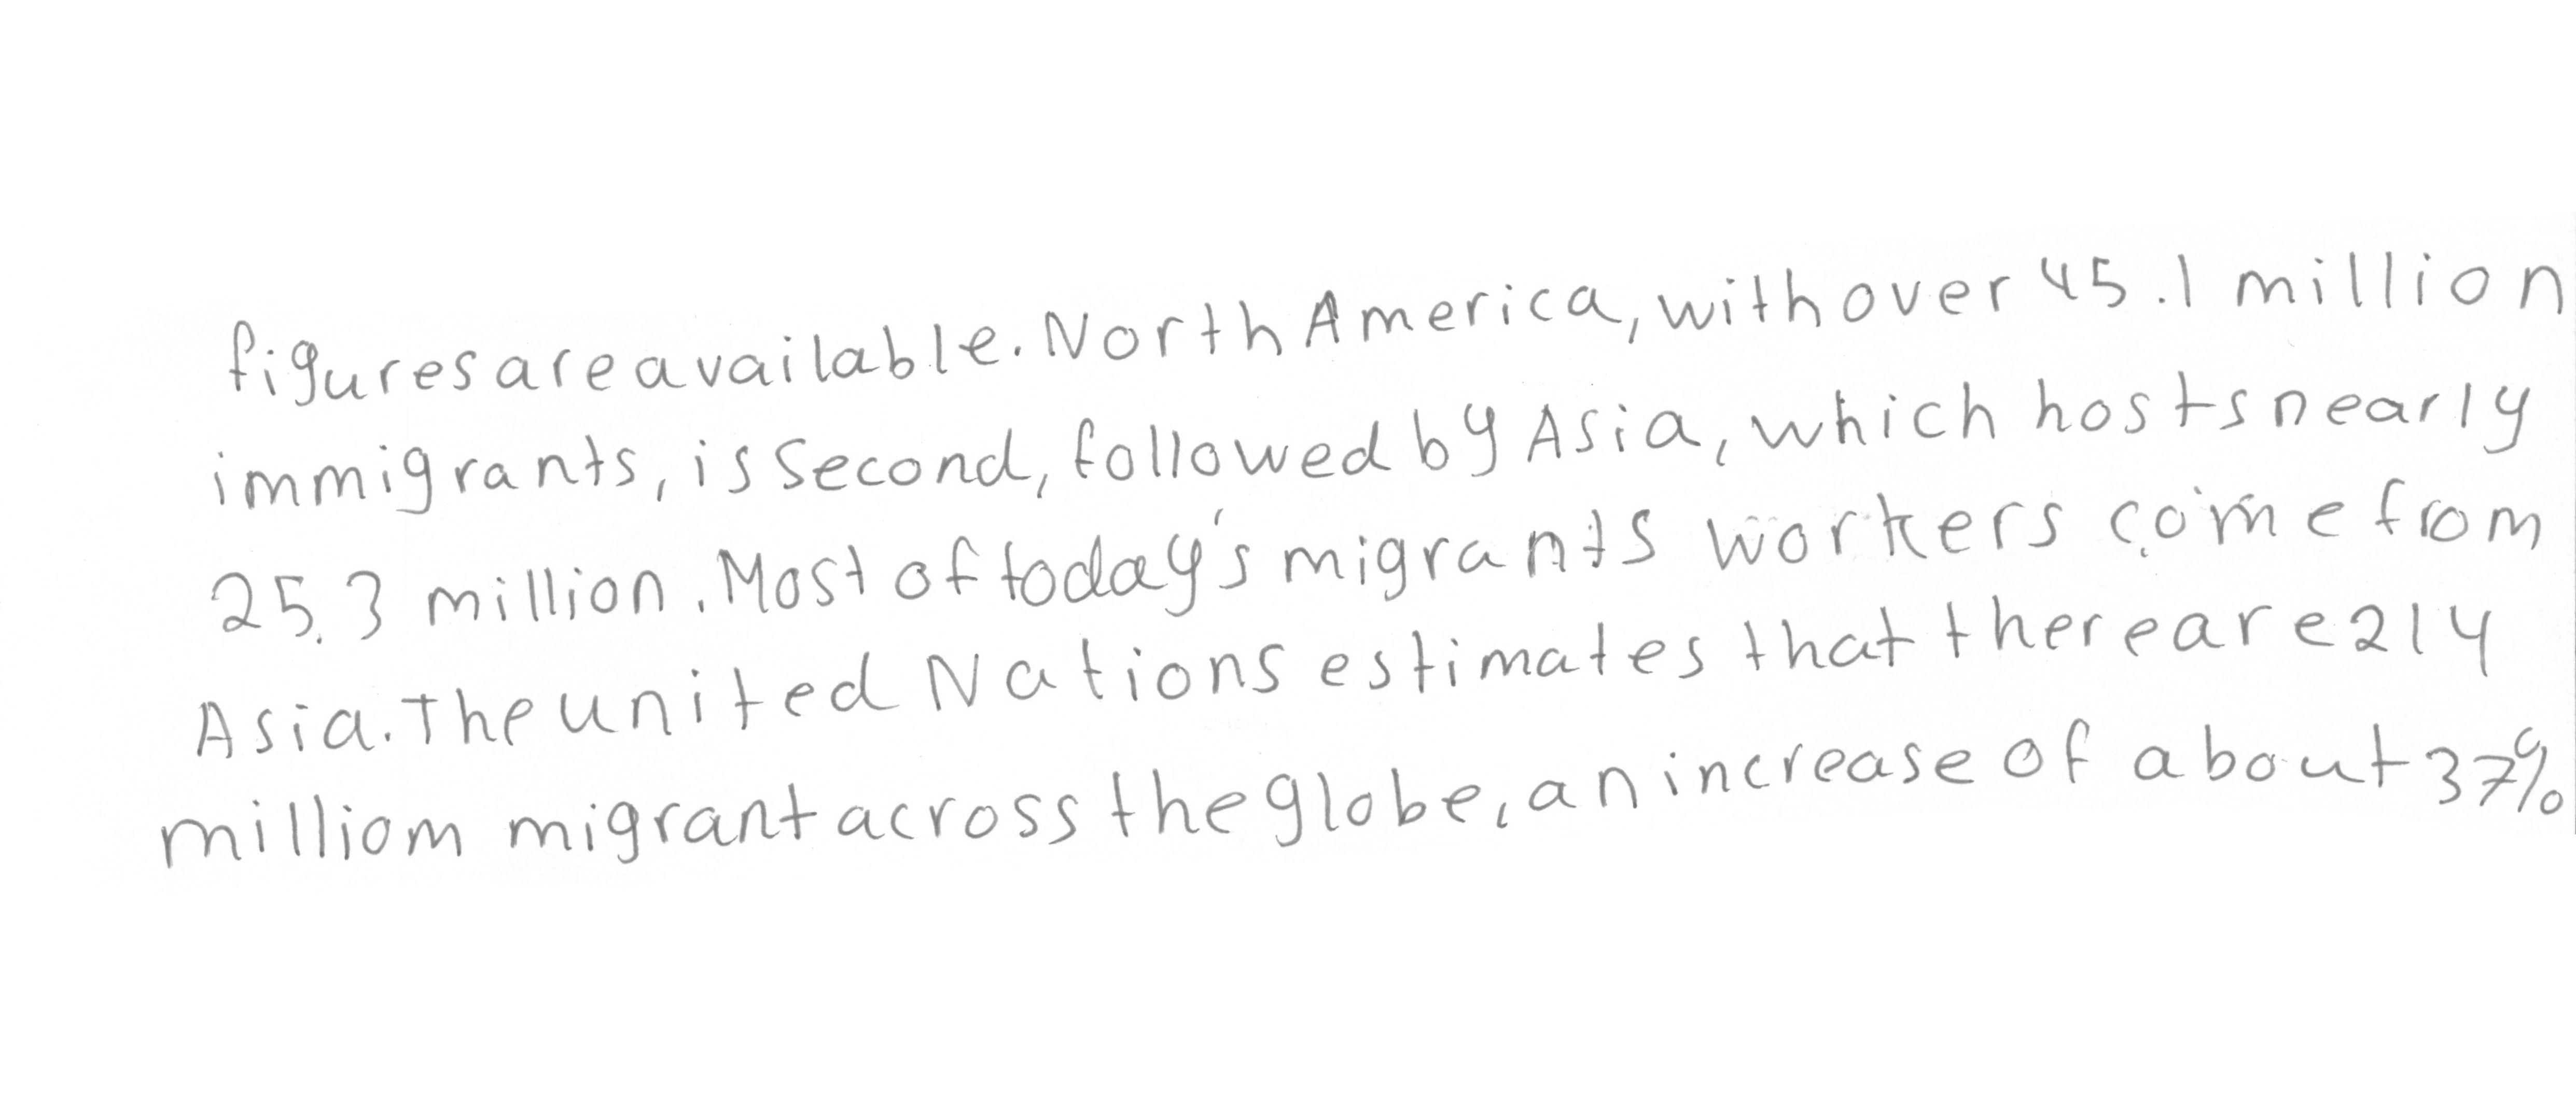 figures are available. North America, with over 45.1 million
immigrants, is Second, followed by Asia, which hosts nearly
25.3 million. Most of today's migrants workers come from
Asia. The united Nations estimates that there are 214
milliom migrant across the globe, an increase of about 37%